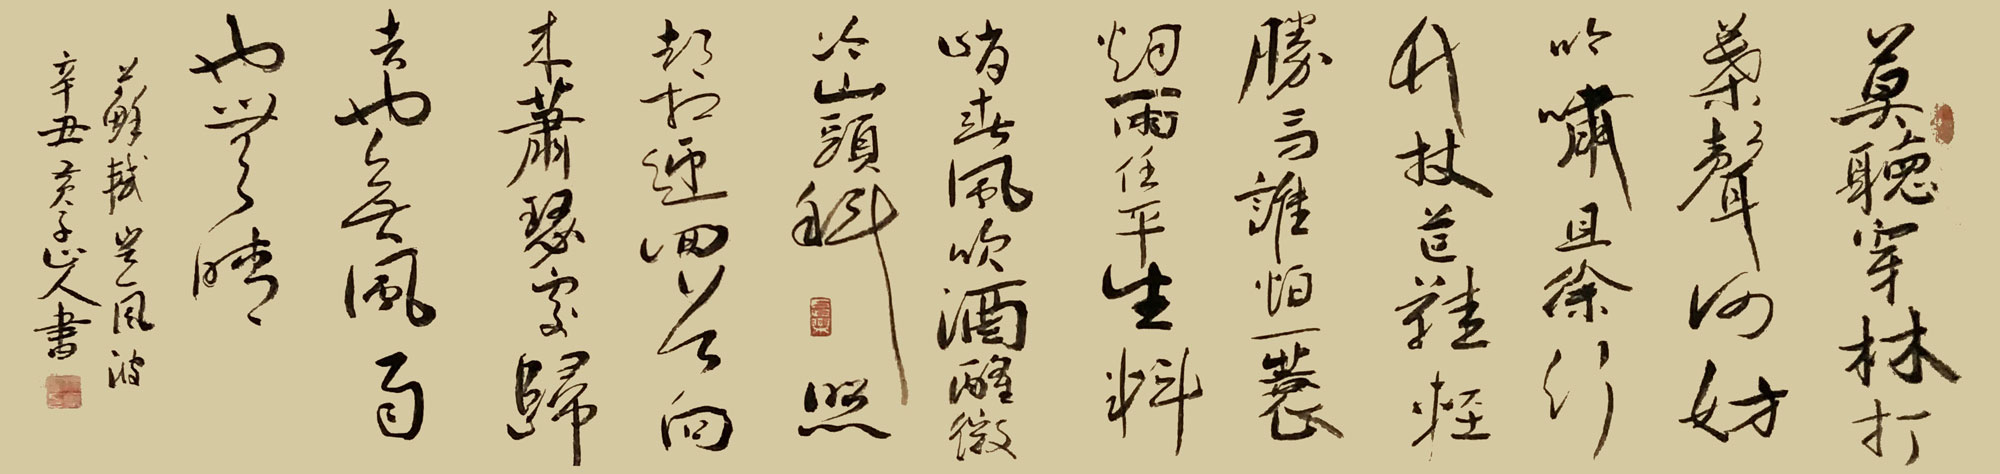 莫聽穿林打
葉聲何妨
吟嘯且徐行
竹杖芒鞋輕
勝馬誰怕一蓑
烟雨任平生料
峭春風吹酒醒微
冷山頭斜照
却相迎回首向
来蕭瑟處歸
去也無風雨
也無晴
蘇軾定风波
辛丑黄子山人書